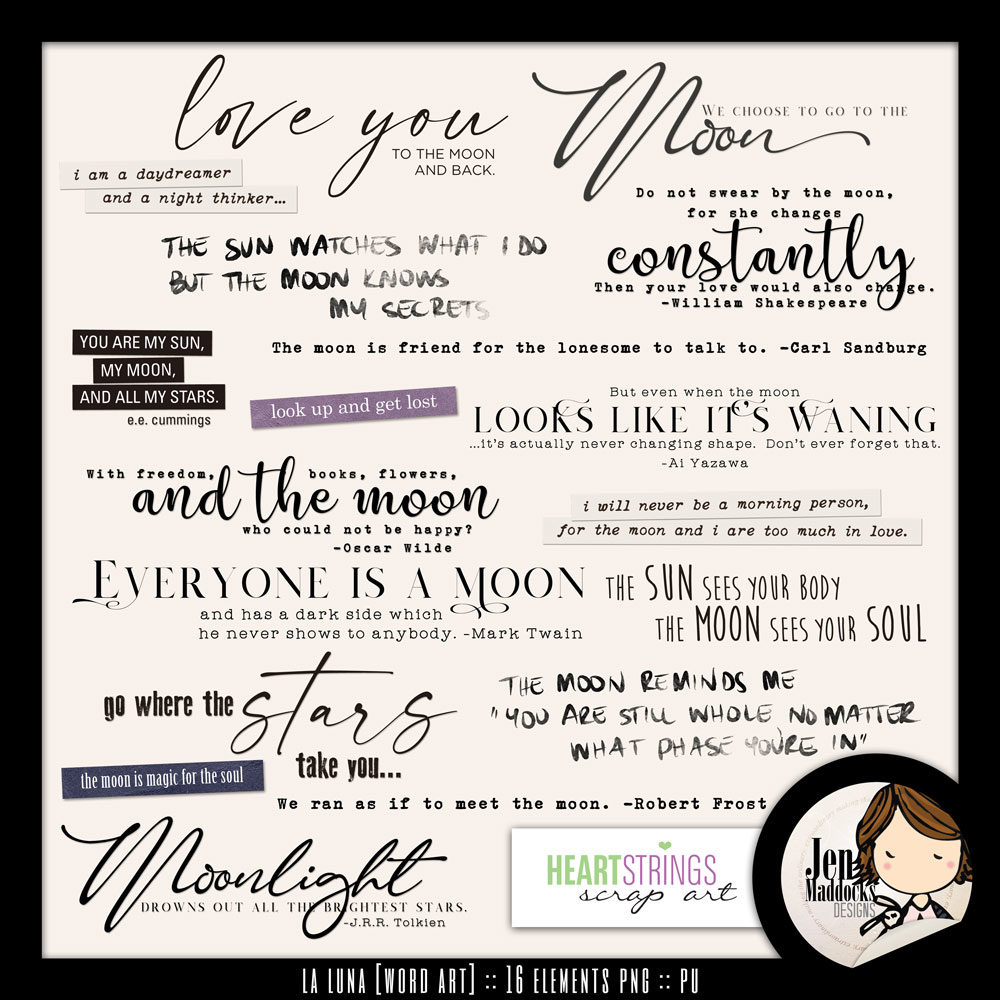 love you
TO THE MOON
AND BACK.
WE CHOOSE TO GO TO THE
Moon
i am a daydreamer
and a night thinker...
Do not swear by the moon,
for she changes
constantly
Then your love would also change.
-William Shakespeare
THE SUN WATCHES WHAT I DO
BUT THE MOON KNOWS
MY SECRETS
YOU ARE MY SUN,
MY MOON,
AND ALL MY STARS.
e.e. cummings
The moon is friend for the lonesome to talk to. -Carl Sandburg
look up and get lost
But even when the moon
LOOKS LIKE IT'S WANING
...it's actually never changing shape. Don't ever forget that.
-Ai Yazawa
With freedom, books, flowers,
and the moon
who could not be happy?
-Oscar Wilde
i will never be a morning person,
for the moon and i are too much in love.
EVERYONE IS A MOON
and has a dark side which
he never shows to anybody. -Mark Twain
THE SUN SEES YOUR BODY
THE MOON SEES YOUR SOUL
go where the
stars
take you...
THE MOON REMINDS ME
"YOU ARE STILL WHOLE NO MATTER
WHAT PHASE YOU'RE IN"
the moon is magic for the soul
We ran as if to meet the moon. -Robert Frost
Moonlight
DROWNS OUT ALL THE BRIGHTEST STARS.
-J.R.R. Tolkien
HEARTSTRINGS
scrap art
Jen
Maddocks
DESIGNS
LA LUNA [WORD ART] :: 16 ELEMENTS PNG :: PU